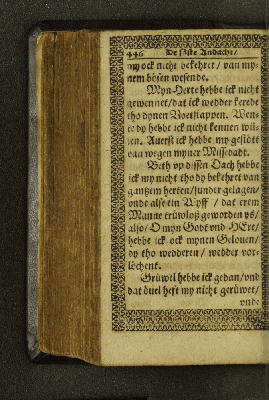 446 De söste Andacht/
my ock nicht bekehret/ van my-
nem bösen wesende.
Myn Herte hebbe ick nicht
gewennet/ dat ick wedder kerede
tho dynen Voetstappen. Wen-
te dy hebbe ick nicht kennen wil-
len. Auerst ick hebbe my geflött
van wegen myner Missedadt.
Beth vp dissen Dach hebbe
ick my nicht tho dy bekehret van
gantzem herten/ sunder gelagen/
vnde alse ein Wyff / dat erem
Manne trüwloß geworden ys/
also/ O myn Godt vnd HEre/
hebbe ick ock mynen Gelouen/
dy tho wedderen/ wedder vor-
löchent.
Grüwel hebbe ick gedan/ vnd
dat quel heft my nicht gerüwet/
vnde